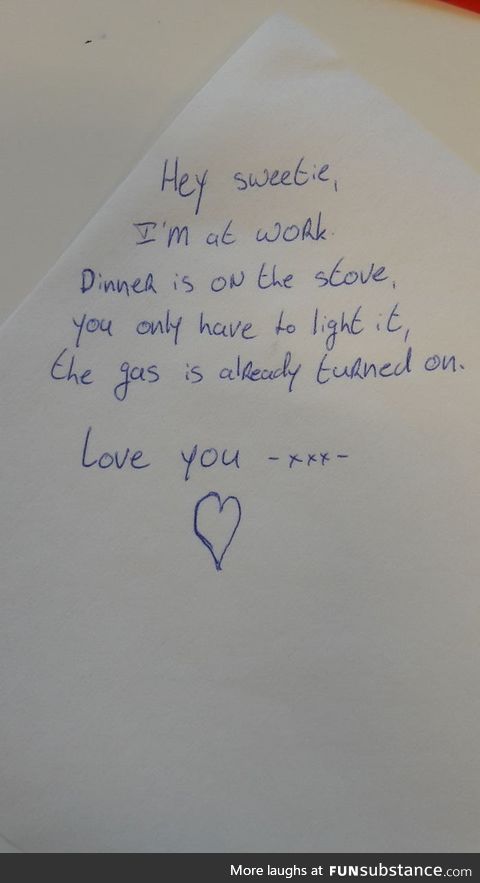 Hey sweetie,
I'm at work.
Dinner is on the stove,
you only have to light it,
the gas is already turned on.
Love you -xxx-
More laughs at FUNsubstance.com